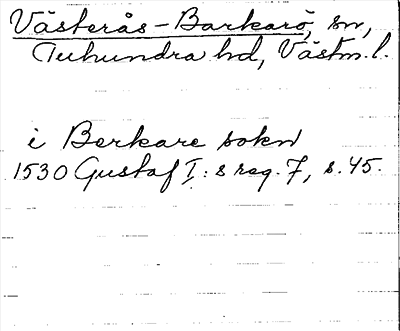 Västerås-Barkarö, sn,
Tuhundra hd, Västm. l.
i Berkare sokn
1530 Gustaf I: s reg. 7, s. 45.